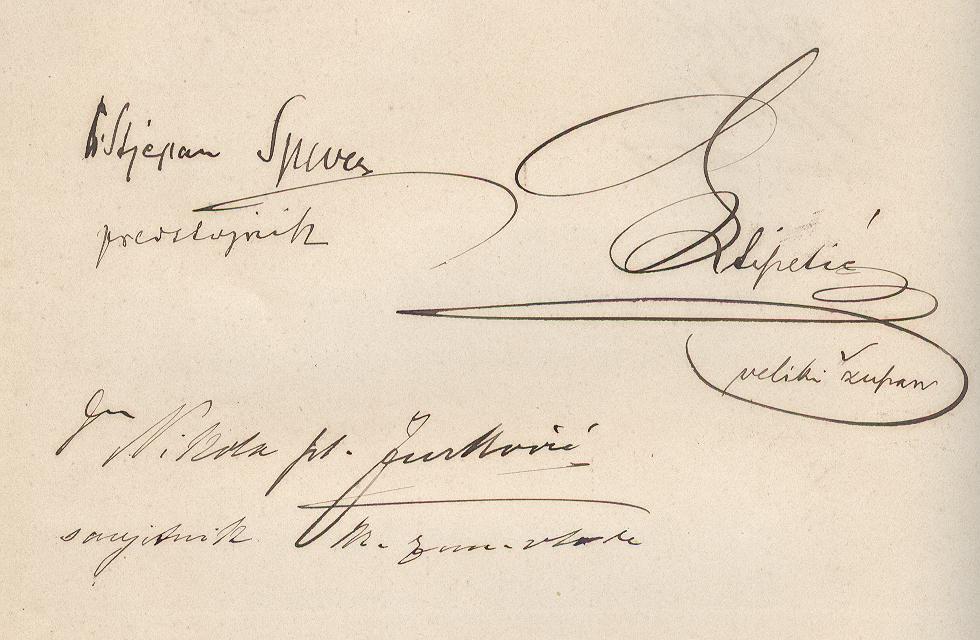 Dr Stjepan Spevec
predstojnik
Stipetić
veliki župan
Dr Nikola pl. Jurković
savjetnik kr. zem. vlade